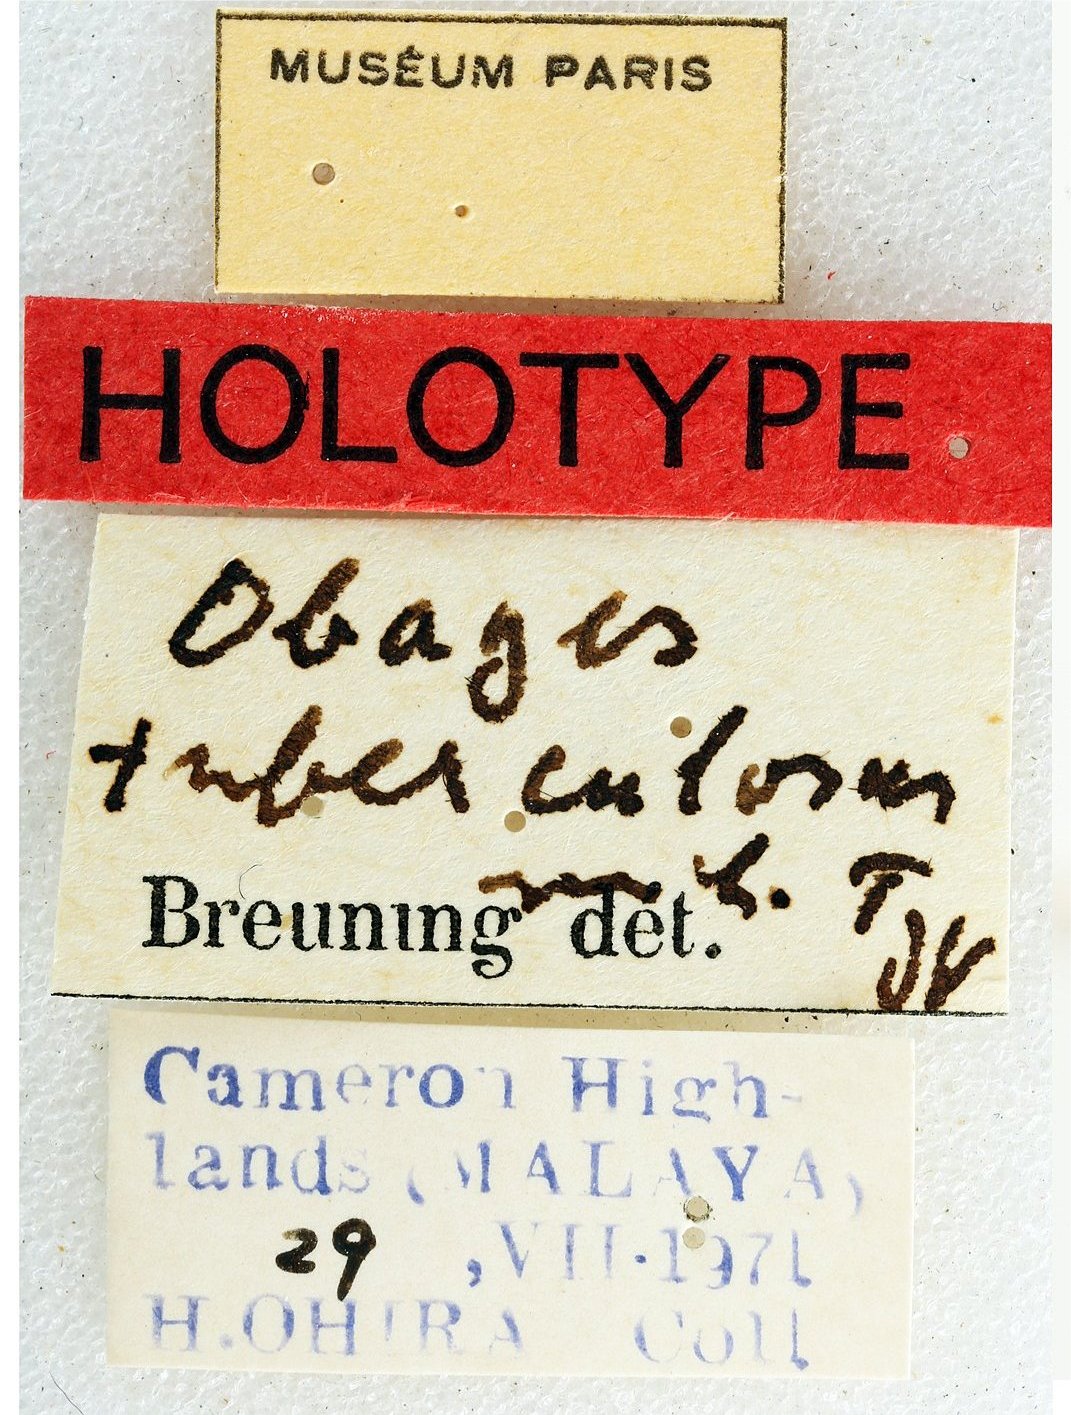 MUSÉUM PARIS
HOLOTYPE
Obages
tuberculosus
mh. Typ
Breuning det.
Cameron High-
lands (MALAYA)
29, VII.1971
H.OHIRA Coll.